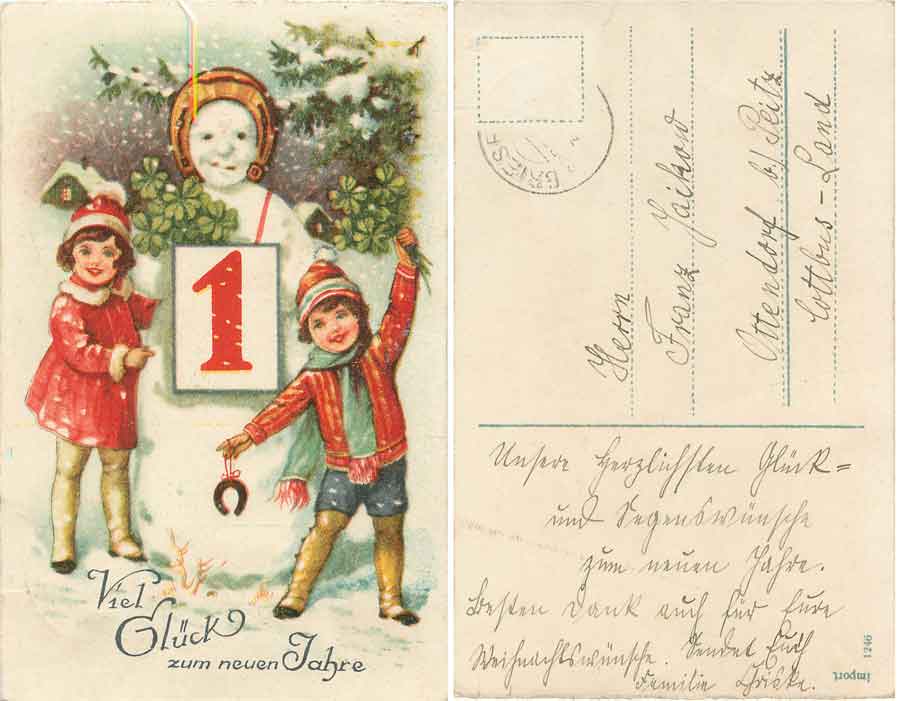 1
Viel
Glück
zum neuen Jahre
Herrn
Franz Jaikow
Ottendorf b/ Peitz
Cottbus-Land
Unsere herzlichsten Glück=
und Segenswünsche
zum neuen Jahre.
Besten Dank auch für Eure
Weihnachtswünsche. Sendet Euch
Familie
import
1246